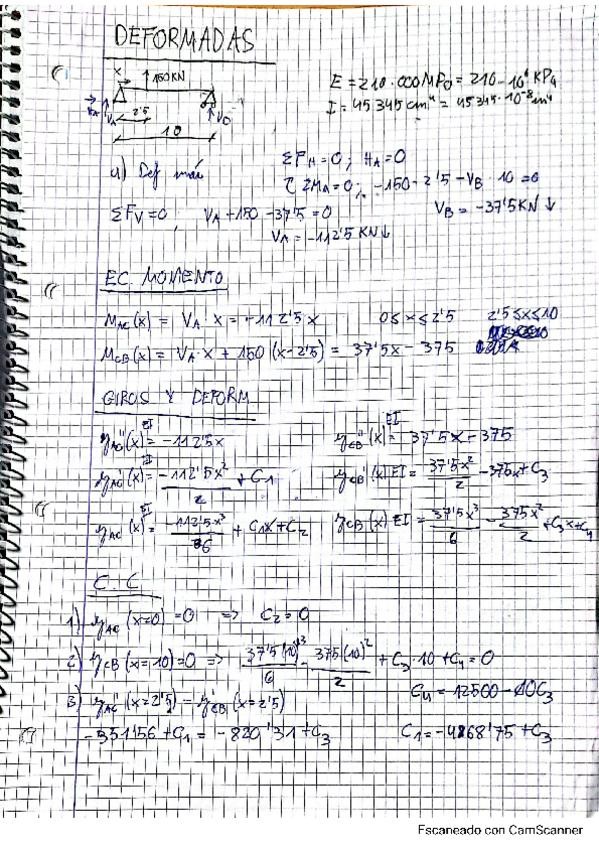 DEFORMADAS
x
150KN
VA
2'5
10
E = 210.000MPa = 210·10⁶ KPa
I = 45345cm⁴ = 45345·10⁻⁸m⁴
a) Def máx
ΣFH=0; HA=0
ΣMA=0; -150·2'5-VB·10=0
ΣFV=0; VA+150-37'5=0
VB=-37'5KN↓
VA=-112'5KN↓
EC. MOMENTO
MAC(x) = VA·x = -112'5x 0≤x≤2'5 2'5≤x≤10
MCB(x) = VA·x + 150(x-2'5) = 37'5x - 375
GIROS Y DEFORM
y''AC(x)EI = -112'5x y''CB(x)EI = 37'5x - 375
y'AC(x)EI = -112'5x²/2 + C1 y'CB(x)EI = 37'5x²/2 - 375x + C3
yAC(x)EI = -112'5x³/6 + C1x + C2 yCB(x)EI = 37'5x³/6 - 375x²/2 + C3x + C4
C.C
1) yAC(x=0)=0 => C2=0
2) yCB(x=10)=0 => 37'5(10)³/6 - 375(10)²/2 + C3·10 + C4 = 0
C4 = 12500 - 10C3
3) y'AC(x=2'5) = y'CB(x=2'5)
-351'56 + C1 = -820'31 + C3 C1 = -468'75 + C3
Escaneado con CamScanner